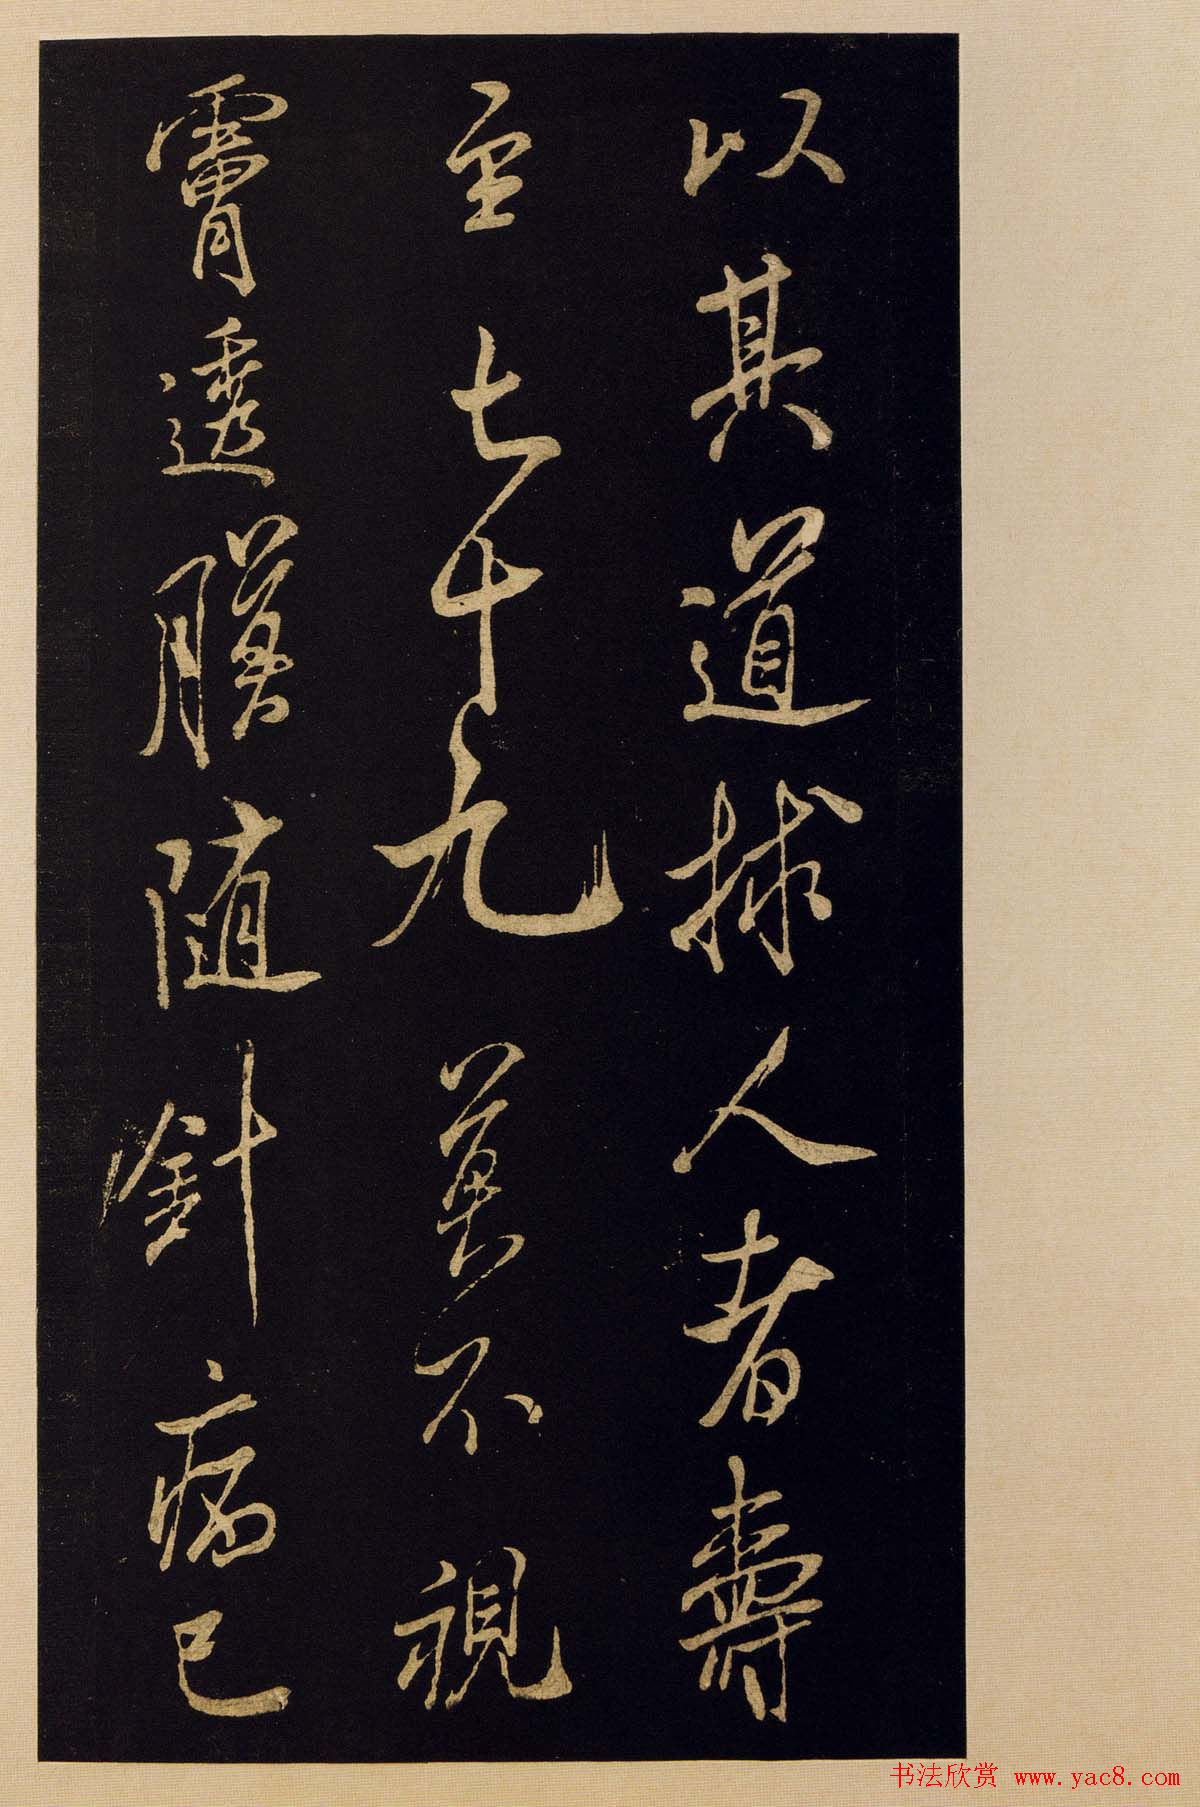 以其道捄人者壽
至七十九莫不視
膚透膜随針病已
书法欣赏 www.yac8.com